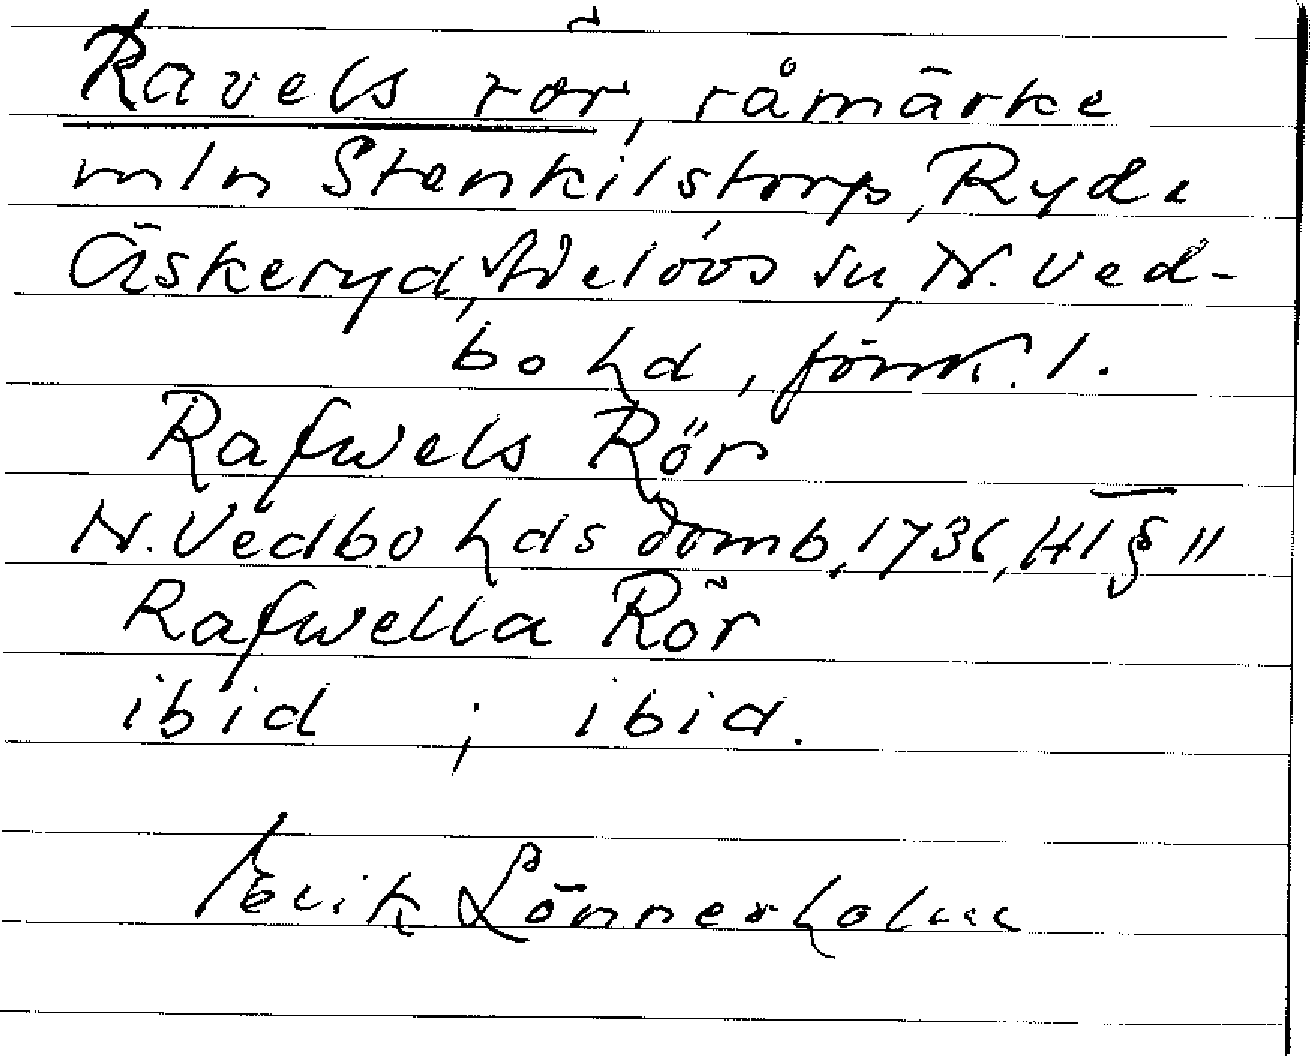 Ravels rör, råmärke
mln Stenkilstorp, Ryd,
Äskeryd, Adelövs sn, N. Ved-
bo hd, Jönk. l.
Rafwels Rör
N. Vedbo hds domb, 1736, HT § 11
Rafwella Rör
ibid ; ibid.
Erik Lönnerholm